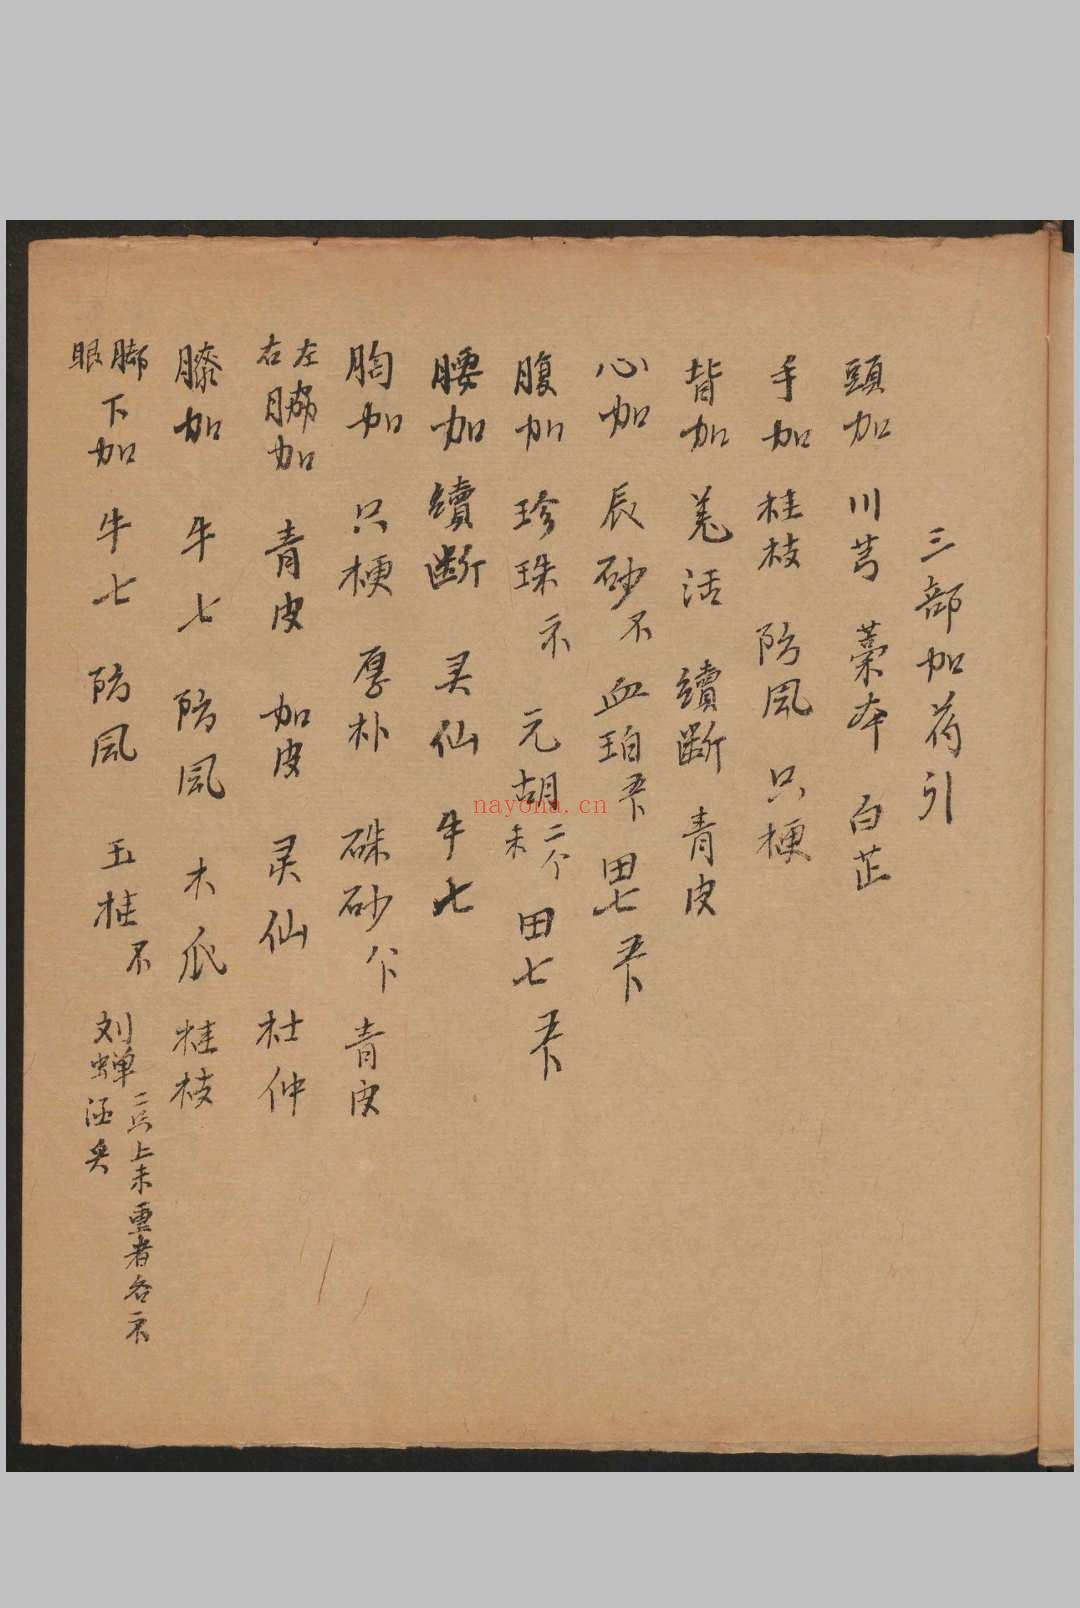 三部加药引
頭加 川芎 藁本 白芷
手加 桂枝 防風 只梗
背加 羗活 續斷 青皮
心加 辰砂 血珀 田七
腹加 珍珠 元胡 二个 田七
腰加 續斷 灵仙 牛七
胸加 只梗 厚朴 硃砂 青皮
左右脇加 青皮 加皮 灵仙 杜仲
膝加 牛七 防風 木瓜 桂枝
脚眼下加 牛七 防風 玉桂 刘蝉 二只 上未重者各
nayona.cn